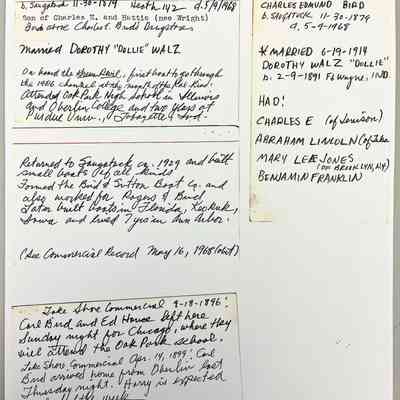 b. Saugatuck 11-30-1879 Heath 142 d. 5/9/1968
Son of Charles E. and Hattie (nee Wright)
Married DOROTHY "DOLLIE" WALZ
On board the first boat to go through
the 1906 channel at the mouth of the Kal. River.
Attended Oak Park High School in Illinois
and Oberlin College and two years at
Purdue Univ., Lafayette, Ind.
Returned to Saugatuck ca. 1929 and built
small boats of all kinds
Formed the Bird & Sutton Boat Co. and
also worked for Rogers & Bird.
Later built boats in Florida, Keokuk,
Iowa and lived 7 yrs in Ann Arbor.
(See Commercial Record May 16, 1968 (obit)
Lake Shore Commercial 9-18-1896:
Carl Bird and Ed House left here
Sunday night for Chicago, where they
will attend the Oak Park school.
Lake Shore Commercial Apr. 14, 1899: Carl
Bird arrived home from Oberlin last
Thursday night. Harry is expected
the week
CHARLES EDMUND BIRD
b. Saugatuck 11-30-1879
d. 5-9-1968
* MARRIED 6-19-1914
DOROTHY WALZ "DOLLIE"
b. 2-9-1891 Ft Wayne, IND.
HAD:
CHARLES E (of Jenison)
ABRAHAM LINCOLN (of
MARY LEE JONES
(of BROOKLYN, NY)
BENJAMIN FRANKLIN